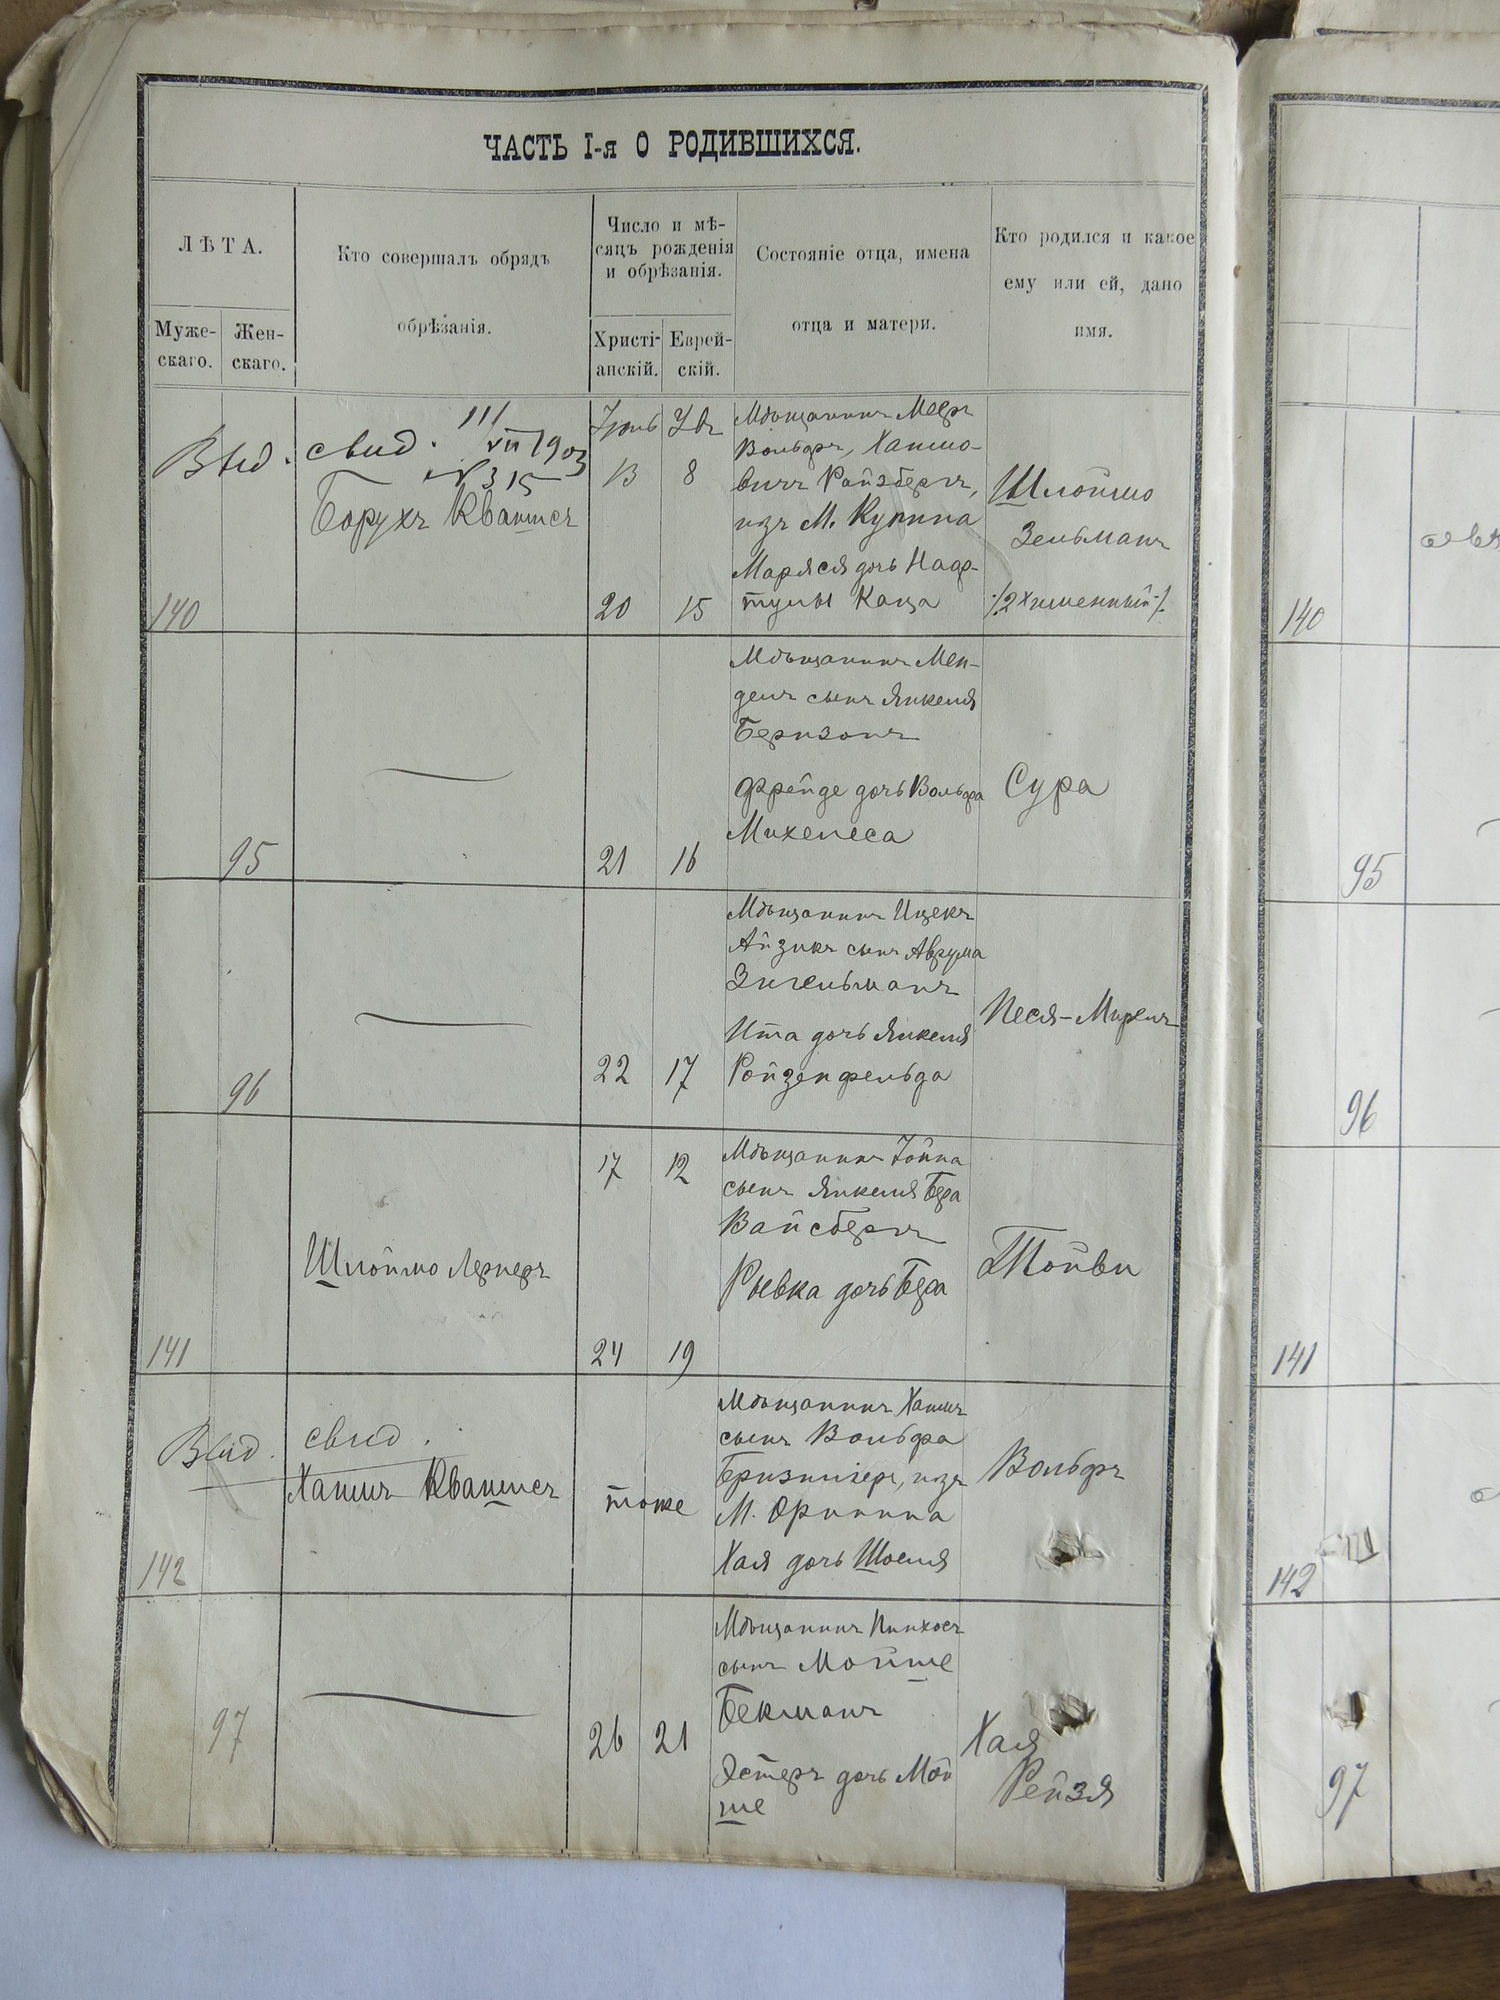 ЧАСТЬ I-я О РОДИВШИХСЯ.
ЛѢТА.
Муже-
скаго.
Жен-
скаго.
Кто совершалъ обрядъ
обрѣзанія.
Число и мѣ-
сяцъ рожденія
и обрѣзанія.
Христі-
анскій.
Еврей-
скій.
Состояніе отца, имена
отца и матери.
Кто родился и какое
ему или ей, дано
имя.
140
Выд. свид. III
VII 1903
№ 315
Борухъ Квашъ
13
8
20
15
Мѣщанинъ Мееръ
Вольфъ, Хаимо-
вичъ Ройзбергъ,
изъ М. Купина
Маряся дочь Наф-
тулы Каца
Шлоймо
Зельманъ
./.2хименный./.
95
21
16
Мѣщанинъ Мен-
дель сынъ Янкеля
Беризонъ
Фрейде дочь Вольфа
Михелеса
Сура
96
22
17
Мѣщанинъ Ицекъ
Айзикъ сынъ Аврума
Зигельманъ
Ита дочь Янкеля
Ройзенфельда
Песя-Миремъ
141
Шлоймо Лернеръ
17
12
24
19
Мѣщанинъ Іойна
сынъ Янкеля Бера
Вайсбергъ
Рывка дочь Бера
Тойви
142
Выд. свид.
Хаимъ Квашъ
тоже
Мѣщанинъ Хаимъ
сынъ Вольфа
изъ
М. Оринина
Хая дочь Шоеля
Вольфъ
97
26
21
Мѣщанинъ Пинхосъ
сынъ Мойше
Бекманъ
Эстеръ дочь Мой
ше
Хая
Рейзя
140
95
96
141
142
97